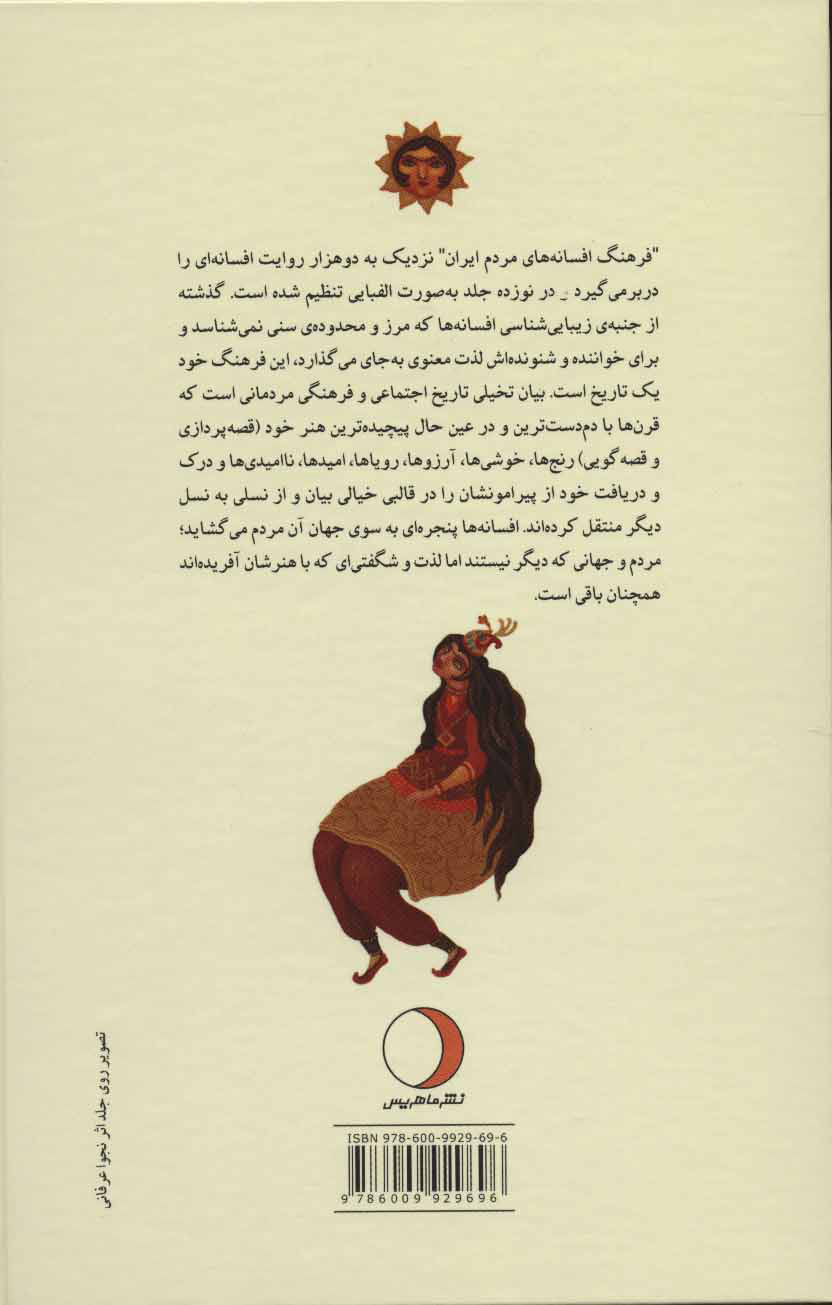 "فرهنگ افسانه‌های مردم ایران" نزدیک به دوهزار روایت افسانه‌ای را
دربرمی‌گیرد در نوزده جلد به‌صورت الفبایی تنظیم شده است. گذشته
از جنبه‌ی زیبایی‌شناسی افسانه‌ها که مرز و محدوده‌ی سنی نمی‌شناسد و
برای خواننده و شنونده‌اش لذت معنوی به‌جای می‌گذارد، این فرهنگ خود
یک تاریخ است. بیان تخیلی تاریخ اجتماعی و فرهنگی مردمانی است که
قرن‌ها با دم‌دست‌ترین و در عین حال پیچیده‌ترین هنر خود (قصه‌پردازی
و قصه‌گویی) رنج‌ها، خوشی‌ها، آرزوها، رویاها، امیدها، ناامیدی‌ها و درک
و دریافت خود از پیرامونشان را در قالبی خیالی بیان و از نسلی به نسل
دیگر منتقل کرده‌اند. افسانه‌ها پنجره‌ای به سوی جهان آن مردم می‌گشاید؛
مردم و جهانی که دیگر نیستند اما لذت و شگفتی‌ای که با هنرشان آفریده‌اند
همچنان باقی است.
نشر ماهریس
ISBN 978-600-9929-69-6
9 786009 929696
تصویر روی جلد اثر نجوا عرفانی